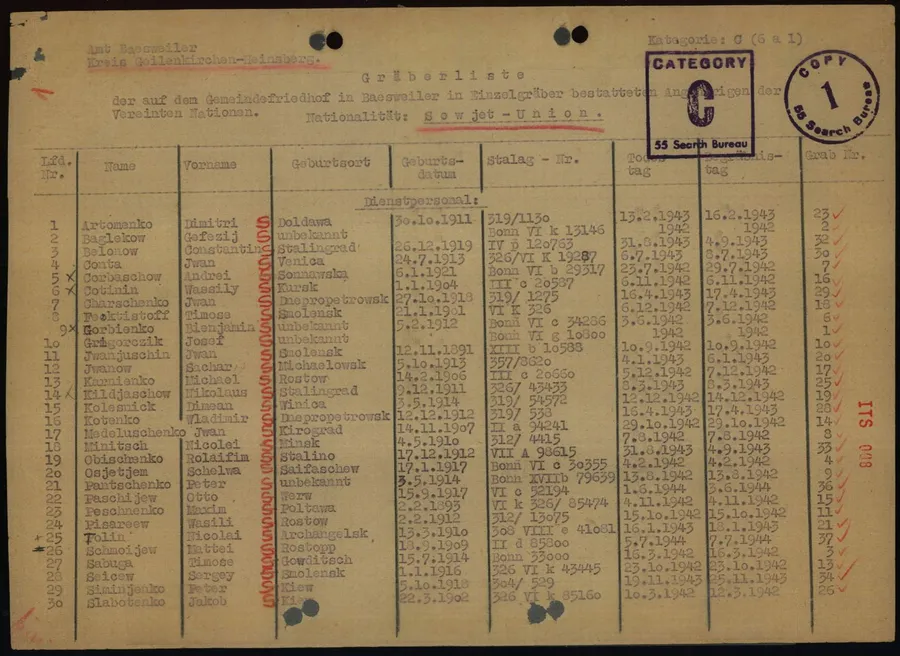 Amt Baesweiler
Kreis Geilenkirchen-Heinsberg.
Kategorie: C (6 a 1)
CATEGORY
C
55 Search Bureau
COPY
1
55 Search Bureau
Gräberliste
der auf dem Gemeindefriedhof in Baesweiler in Einzelgräber bestatteten Angehörigen der
Vereinten Nationen. Nationalität: Sowjet-Union.
Lfd. Nr. Name Vorname Geburtsort Geburts-datum Stalag - Nr. Todes tag Begräbnis-tag Grab Nr.
Dienstpersonal:
1 Artomenko Dimitri Doldawa 30.10.1911 319/1130 13.2.1943 16.2.1943 23
2 Baglekow Gefezij unbekannt Bonn VI k 13146 1942 1942 2
3 Belonow Constantin Stalingrad 26.12.1919 IV p 120763 31.8.1943 4.9.1943 32
4 Conta Jwan Venica 24.7.1913 326/VI K 19287 6.7.1943 8.7.1943 30
5 x Corbaschow Andrei Sonnawska 6.1.1921 Bonn VI b 29317 23.7.1942 29.7.1942 7
6 x Cotinin Wassily Kursk 1.1.1904 III c 20587 6.11.1942 6.11.1942 16
7 Charschenko Jwan Dnepropetrowsk 27.10.1918 319/ 1275 16.4.1943 17.4.1943 29
8 Fecktistoff Timose Smolensk 21.1.1901 VI K 326 6.12.1942 7.12.1942 18
9 x Gorbienko Bienjamin unbekannt 5.2.1912 Bonn VI c 34286 3.6.1942 3.6.1942 6
10 Grigorczik Josef unbekannt Bonn VI g 10800 1942 1942 1
11 Jwanjuschin Jwan Smolensk 12.11.1891 XIII b 10588 10.9.1942 10.9.1942 10
12 Jwanow Sachar Michaelowsk 5.10.1913 357/8620 4.1.1943 6.1.1943 20
13 Karnienko Michael Rostow 14.2.1906 III c 20660 5.12.1942 7.12.1942 17
14 Kildjaschow Nikolaus Stalingrad 9.12.1911 326/ 43433 8.3.1943 8.3.1943 25
15 Kolesnick Dimean Winica 3.5.1914 319/ 54572 12.12.1942 14.12.1942 19
16 Kotenko Wladimir Dnepropetrowsk 12.12.1912 319/ 538 16.4.1943 17.4.1943 28
17 Madeluschenko Jwan Kirograd 14.11.1907 II a 94241 29.10.1942 29.10.1942 14
18 Minitsch Nicolei Minsk 4.5.1910 312/ 4415 7.8.1942 7.8.1942 8
19 Obischenko Rolaifim Stalino 17.12.1912 VII A 98615 31.8.1943 4.9.1943 33
20 Osjetjem Schelwa Saifaschew 17.1.1917 Bonn VI c 30355 4.2.1942 4.2.1942 4
21 Pantschenko Peter unbekannt 3.5.1914 Bonn XVIIb 79639 13.8.1942 13.8.1942 9
22 Paschijew Otto Werw 15.9.1917 VI c 52194 1.6.1944 3.6.1944 36
23 Peschnenko Maxim Poltawa 2.2.1893 VI k 326/ 85474 4.11.1942 4.11.1942 15
24 Pisareew Wasili Rostow 2.2.1912 312/ 13075 15.10.1942 15.10.1942 11
25 Folin Nicolai Archangelsk 13.3.1910 308 VIII e 41081 16.1.1943 18.1.1943 21
26 Schmoijew Mattei Rostopp 18.9.1909 II d 85800 5.7.1944 7.7.1944 37
27 Sabuga Timose Gowditsch 15.7.1914 Bonn 33000 16.3.1942 16.3.1942 3
28 Seicew Sergey Smolensk 1.1.1916 326 VI k 43445 23.10.1942 23.10.1942 13
29 Siminjenko Peter Kiew 5.10.1918 304/ 529 19.11.1943 25.11.1943 34
30 Slabotenko Jakob Kiew 22.3.1902 326 VI k 85160 10.3.1942 12.3.1942 26
ITS 008